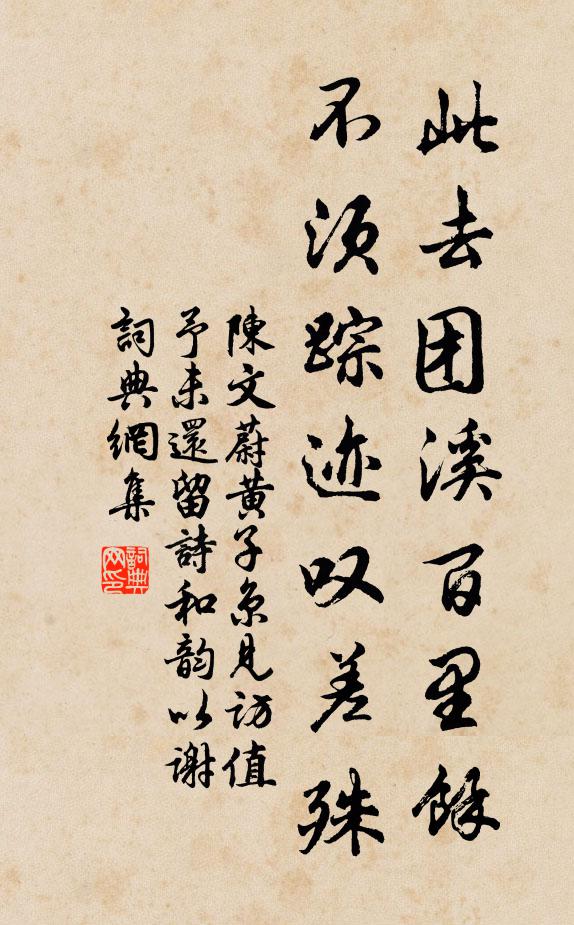 此去团溪百里餘
不须踪迹叹差殊
陳文蔚黄子京見訪值
予未還留詩和韵以谢
詞典網集
詞典
网印